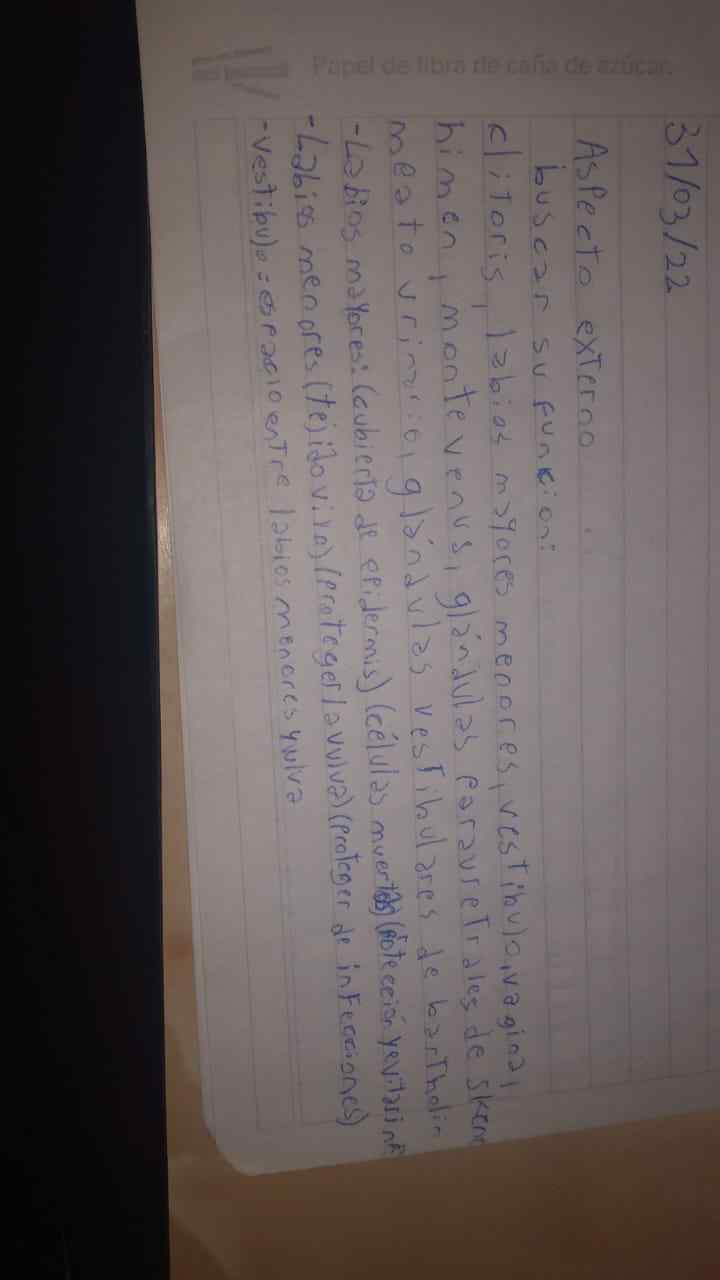 Papel de fibra de caña de azúcar.
31/03/22
Aspecto externo
buscar su función:
clitoris, labios mayores menores, vestibulo, vagina,
himen, monte venus, glándulas parauretrales de skene
meato urinario, glándulas vestibulares de bartholin
-Labios mayores: (cubierta de epidermis) (células muertas) (protección y evitar inf
-Labios menores (tejido vivo) (proteger la vulva) (proteger de infecciones)
-vestibulo = espacio entre labios menores y vulva